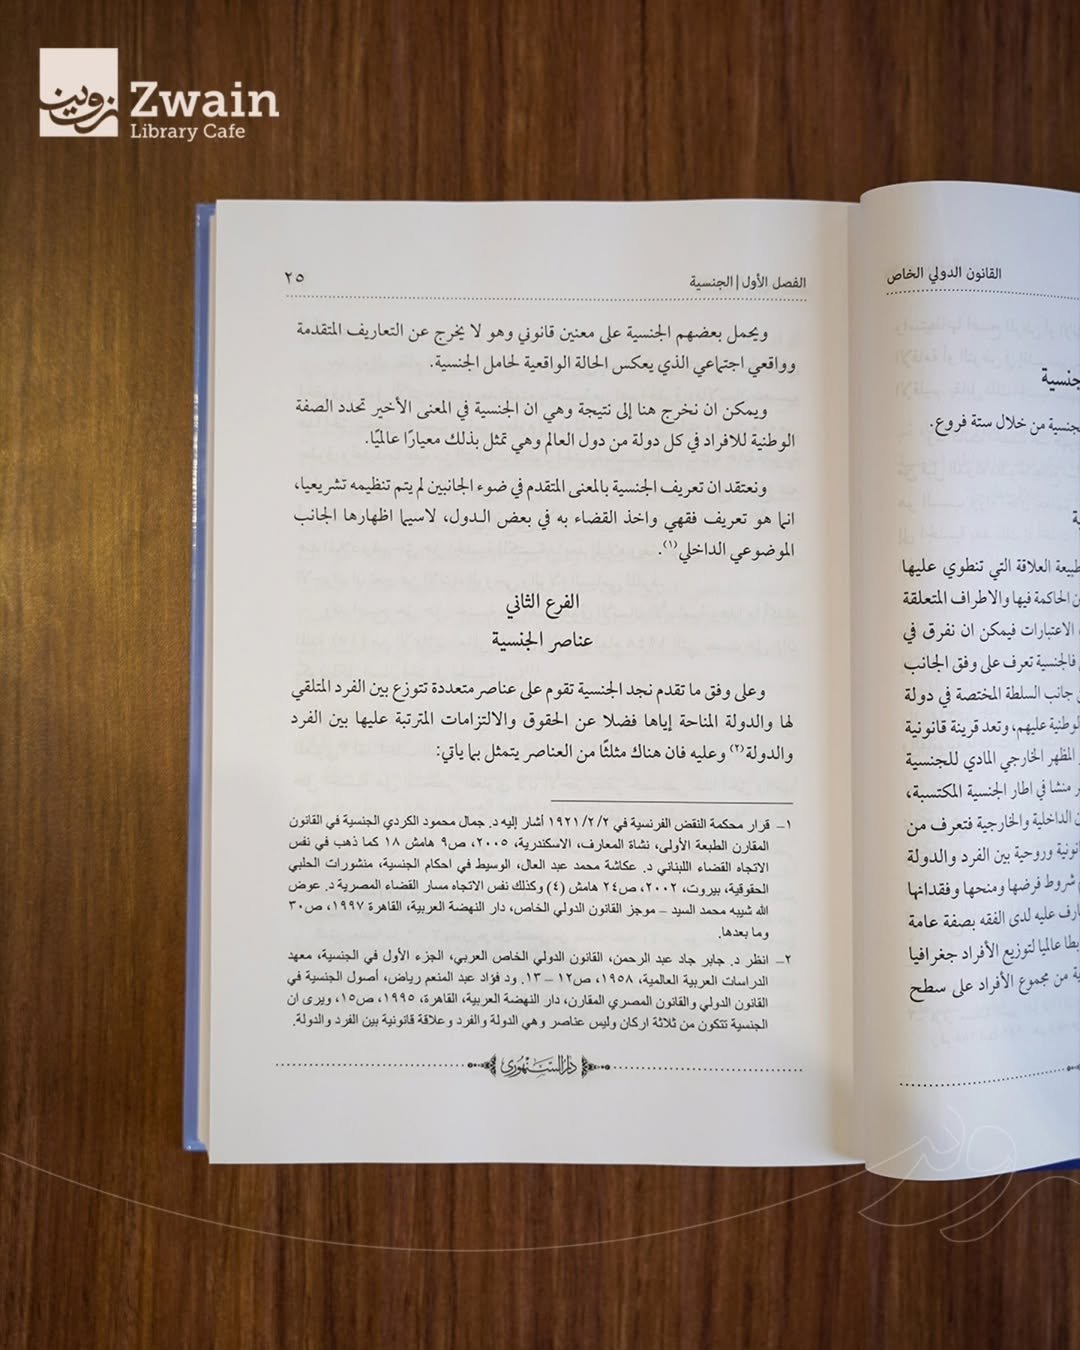 زوين
Zwain
Library Cafe
القانون الدولي الخاص
جنسية
جنسية من خلال ستة فروع.
طبيعة العلاقة التي تنطوي عليها
الحاكمة فيها والاطراف المتعلقة
الاعتبارات فيمكن ان نفرق في
فالجنسية تعرف على وفق الجانب
جانب السلطة المختصة في دولة
الوطنية عليهم، وتعد قرينة قانونية
المظهر الخارجي المادي للجنسية
منشا في اطار الجنسية المكتسبة،
الداخلية والخارجية فتعرف من
قانونية وروحية بين الفرد والدولة
شروط فرضها ومنحها وفقدانها
عليه لدى الفقه بصفة عامة
عالميا لتوزيع الأفراد جغرافيا
من مجموع الأفراد على سطح
الفصل الأول | الجنسية ٢٥
ويحمل بعضهم الجنسية على معنين قانوني وهو لا يخرج عن التعاريف المتقدمة
وواقعي اجتماعي الذي يعكس الحالة الواقعية لحامل الجنسية.
ويمكن ان نخرج هنا إلى نتيجة وهي ان الجنسية في المعنى الأخير تحدد الصفة
الوطنية للافراد في كل دولة من دول العالم وهي تمثل بذلك معيارًا عالميًا.
ونعتقد ان تعريف الجنسية بالمعنى المتقدم في ضوء الجانبين لم يتم تنظيمه تشريعيا،
انما هو تعريف فقهي واخذ القضاء به في بعض الدول، لاسيما اظهارها الجانب
الموضوعي الداخلي(١).
الفرع الثاني
عناصر الجنسية
وعلى وفق ما تقدم نجد الجنسية تقوم على عناصر متعددة تتوزع بين الفرد المتلقي
لها والدولة المناحة إياها فضلا عن الحقوق والالتزامات المترتبة عليها بين الفرد
والدولة(٢) وعليه فان هناك مثلثًا من العناصر يتمثل بما ياتي:
١– قرار محكمة النقض الفرنسية في ١٩٢١/٢/٢ أشار إليه د. جمال محمود الكردي الجنسية في القانون
المقارن الطبعة الأولى، نشاة المعارف، الاسكندرية، ٢٠٠٥، ص٩ هامش ١٨ كما ذهب في نفس
الاتجاه القضاء اللبناني د. عكاشة محمد عبد العال، الوسيط في احكام الجنسية، منشورات الحلبي
الحقوقية، بيروت، ٢٠٠٢، ص٢٤ هامش (٤) وكذلك نفس الاتجاه مسار القضاء المصرية د. عوض
الله شيبه محمد السيد – موجز القانون الدولي الخاص، دار النهضة العربية، القاهرة ١٩٩٧، ص٣٠
وما بعدها.
٢– انظر د. جابر جاد عبد الرحمن، القانون الدولي الخاص العربي، الجزء الأول في الجنسية، معهد
الدراسات العربية العالمية، ١٩٥٨، ص١٢ – ١٣. ود فؤاد عبد المنعم رياض، أصول الجنسية في
القانون الدولي والقانون المصري المقارن، دار النهضة العربية، القاهرة، ١٩٩٥، ص١٥، ويرى ان
الجنسية تتكون من ثلاثة اركان وليس عناصر وهي الدولة والفرد وعلاقة قانونية بين الفرد والدولة.
دار السنهوري